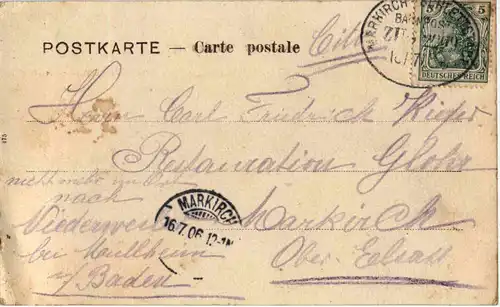 POSTKARTE — Carte postale
MARKIRCH
BAHNPOST
ZUG
5
DEUTSCHES REICH
Herrn Carl Friedrich Kiefer
Restauration Glohr
Markirch
Ober Elsaß
nicht mehr
nach
Niederweiler
bei Müllheim
i/Baden
MARKIRCH
16.7.06. 12-1N